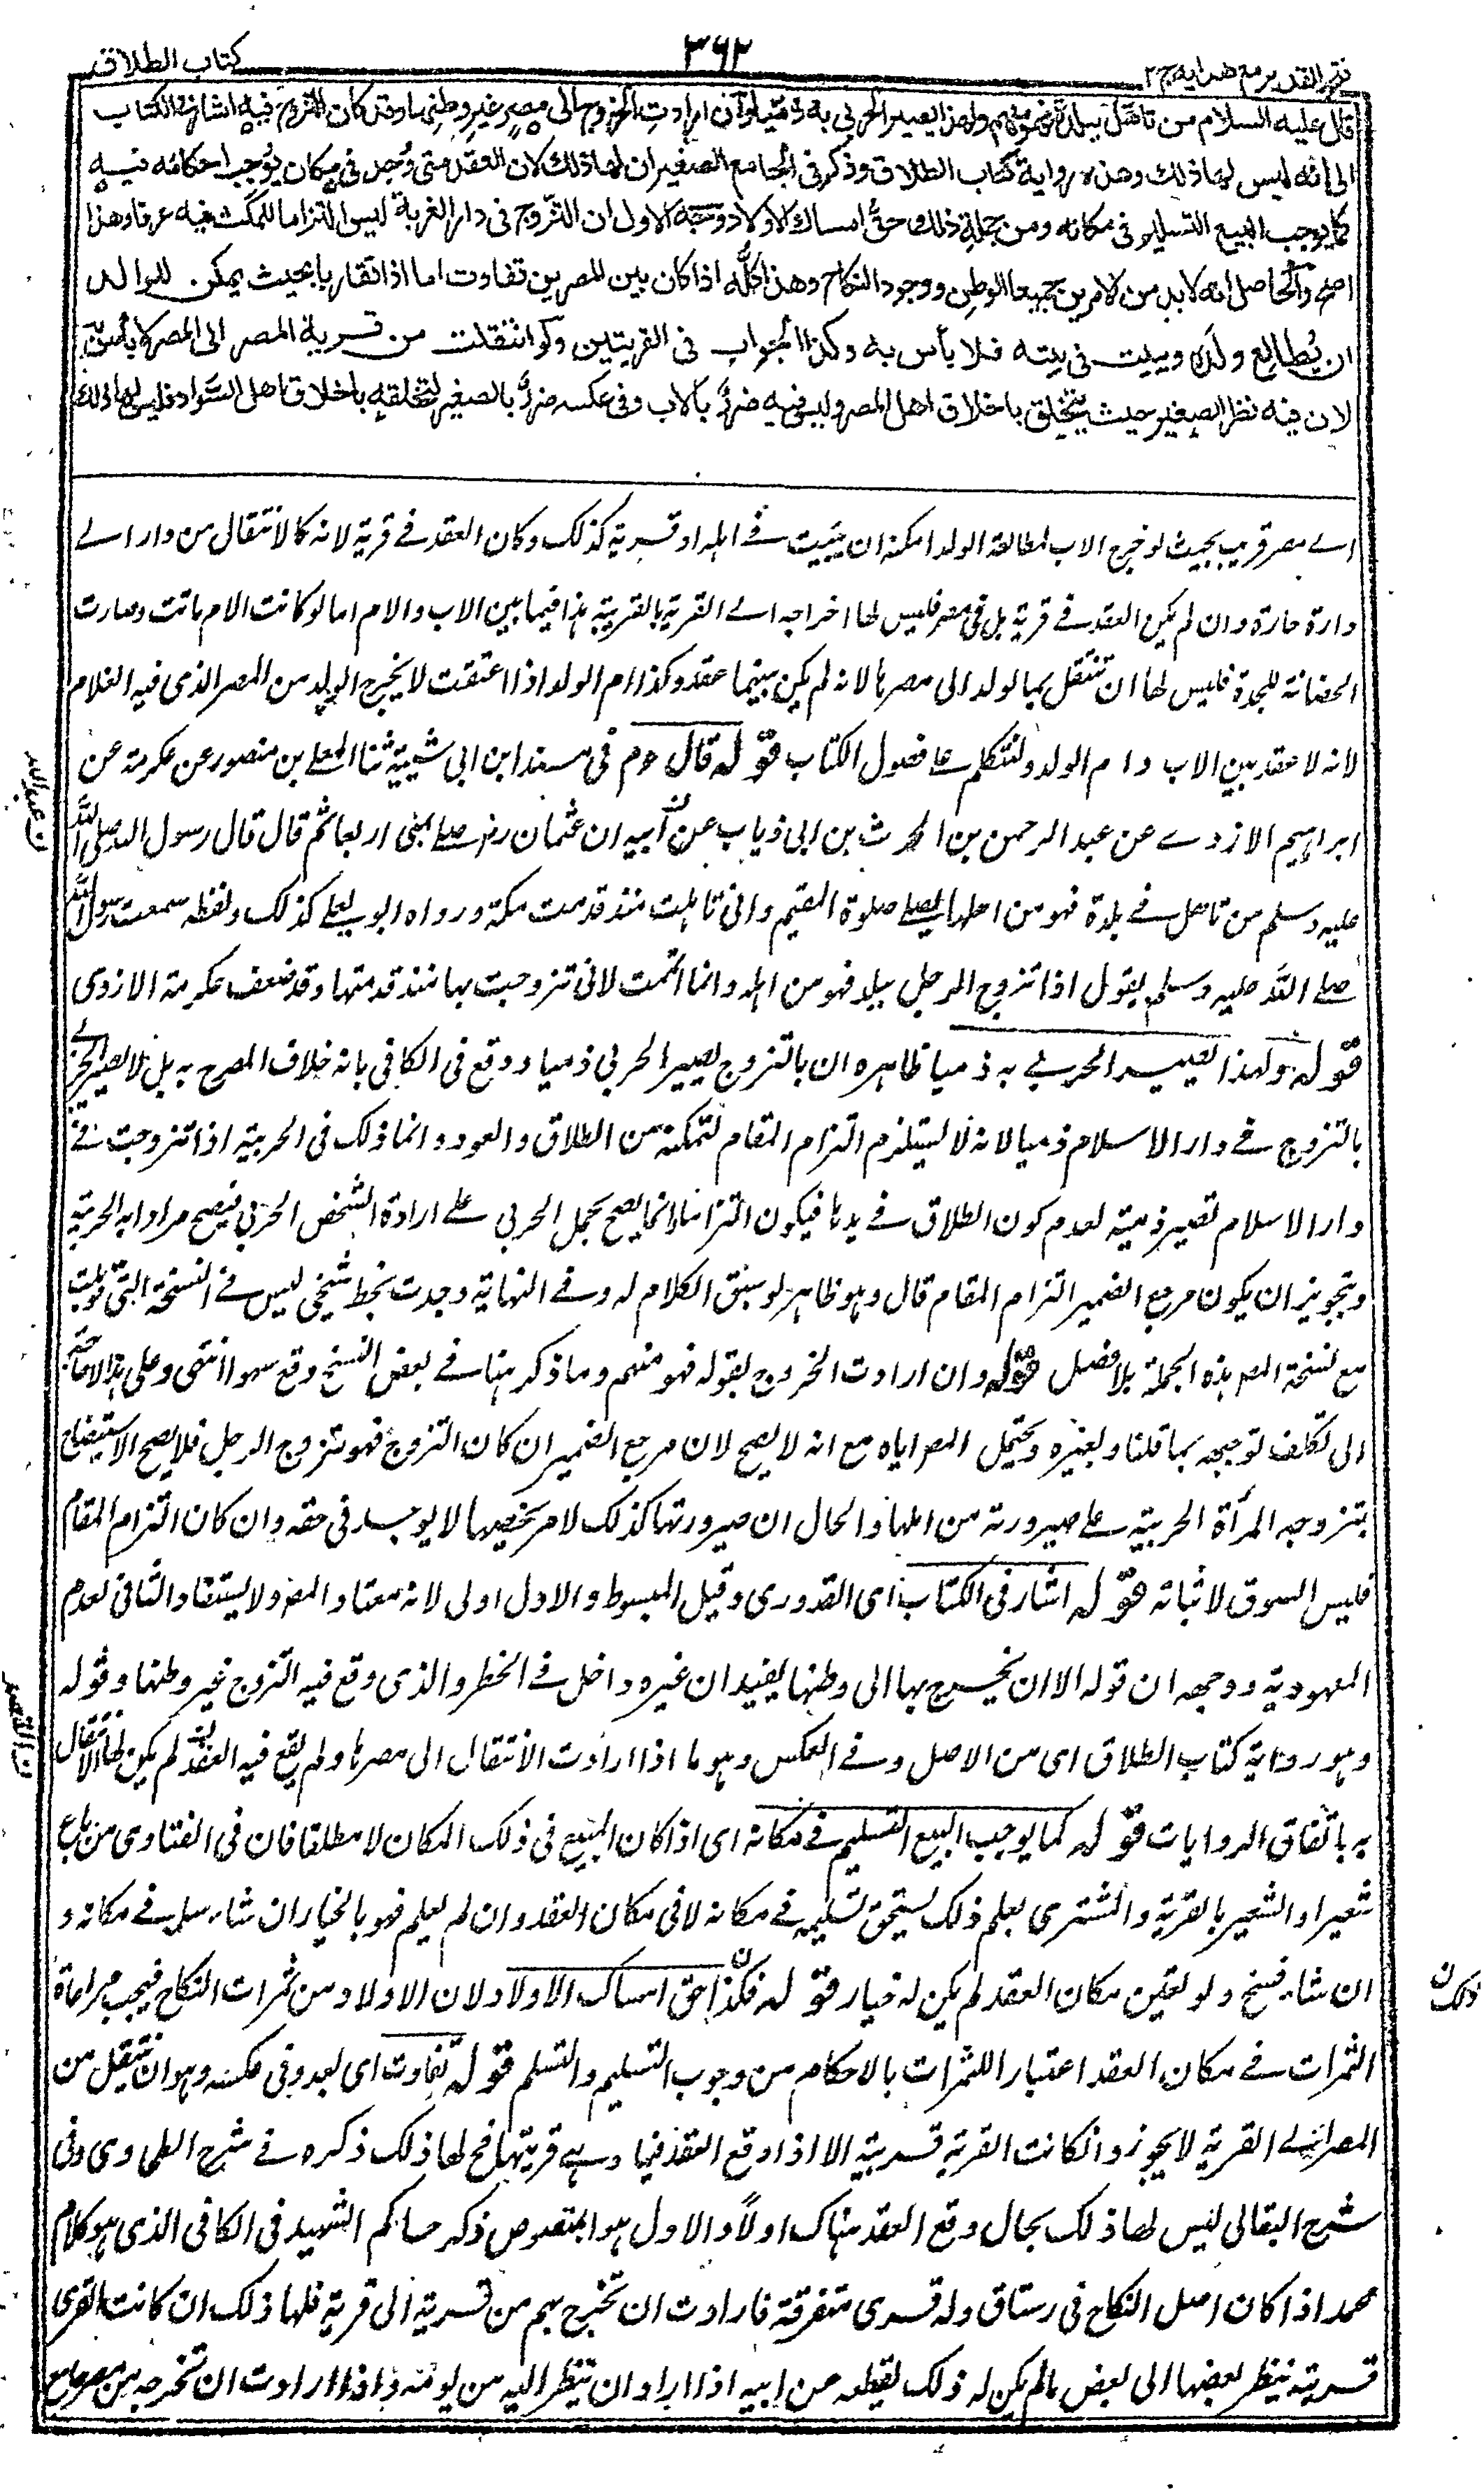 كتاب الطلاق
٣٦٢
فتح القدير مع هدايه ج ٢
قال عليه السلام من تأهل ببلدة فهو منهم ولهذا يصير الحربى به ذميا وان ارادت الخروج الى مصر غير وطنها وقد كان التزوج فيه اشار فى الكتاب
الى انه ليس لها ذلك وهذه رواية كتاب الطلاق وذكر فى الجامع الصغير ان لها ذلك لان العقد متى وجد فى مكان يوجب احكامه فيه
كما يوجب البيع التسليم فى مكانه ومن جملة ذلك حق امساك الاولاد وجه الاول ان التزوج فى دار الغربة ليس التزاما للمكث فيه عرفا وهذا
اصح والحاصل انه لا بد من الامرين جميعا الوطن ووجود النكاح وهذا كله اذا كان بين المصرين تفاوت اما اذا تقاربا بحيث يمكن للوالد
ان يطالع ولده ويبيت فى بيته فلا بأس به وكذا الجواب فى القريتين ولو انتقلت من قرية المصر الى المصر لا بأس به
لان فيه نظر الصغير حيث يتخلق باخلاق اهل المصر وليس فيه ضرر بالاب وفى عكسه ضرر بالصغير لتخلقه باخلاق اهل السواد فليس لها ذلك
الے مصر قريب بحيث لو خرج الاب لمطالعة الولد امكنه ان يبيت فے اہله او قرية كذلك وكان العقد فے قرية لانه كالانتقال من دار الے
دارة حارة وان لم يكن العقد فے قرية بل فى مصر فليس لها اخراجه الے القرية بالقريبة ہذا فيما بين الاب والام اما لو كانت الام ماتت وصارت
الحضانة للجدة فليس لها ان تنتقل بالولد الى مصرہا لانه لم يكن بينہما عقد وكذا ام الولد اذا اعتقت لا يخرج الولد من المصر الذى فيه الغلام
لانه لا عقد بين الاب وام الولد ولنتكلم على فصول الكتاب قوله قال عم فى مسند ابن ابى شيبة ثنا المعلى بن منصور عن عكرمة عن
ابراہيم الازدے عن عبد الرحمن بن الحرث بن ابى ذياب عن ابيه ان عثمان رض صلے بمنى اربعا ثم قال قال رسول الله صلى الله
عليه وسلم من تاهل فے بلدة فہو من اهلہا يصلے صلوة المقيم وانى تاہلت منذ قدمت مكة ورواه ابو يعلے كذلك ولفظه سمعت رسول الله
صلے الله عليه وسلم يقول اذا تزوج الرجل ببلد فہو من اہله وانما اتممت لانى تزوجت بہا منذ قدمتہا وقد ضعف عكرمة الازدى
قوله ولہذا يصير الحربے به ذميا ظاہره ان بالتزوج يصير الحربى ذميا ووقع فى الكافى بانه خلاف المصرح به بل لا يصير الحربے
بالتزوج فے دار الاسلام ذميا لانه لا يستلزم التزام المقام لتمكنه من الطلاق والعود وانما ذلك فى الحربية اذا تزوجت فے
دار الاسلام تصير ذمية لعدم كون الطلاق فے يدہا فيكون التزاما لانما يصح بحمل الحربى علے ارادة الشخص الحربى فيصح مرادا به الحربية
وتجويز ان يكون مرجع الضمير التزام المقام قال وہو ظاہر لو سبق الكلام له وفے النہاية وجدت بخط شيخى ليس فے النسخة التى قوبلت
مع نسخة المص ہذه الجملة بلا فصل قوله وان ارادت الخروج بقوله فہو منہم وما ذكر ہنا فے بعض النسخ وقع سہوا انتہى وعلى ہذا لا حاجة
الى تكلف توجيہه بما قلنا وبغيره وتحمل المص اياه مع انه لا يصح لان مرجع الضمير ان كان التزوج فہو تزوج الرجل فلا يصح الاستيضاح
بتزوجه المرأة الحربية علے صيرورته من اہلہا والحال ان صيرورتہا كذلك لامر يخصہا لا يوجد فى حقه وان كان التزام المقام
فليس السوق لاثباته قوله اشار فى الكتاب اى القدورى وقيل المبسوط والاول اولى لانه معتاد المص ولا يستفاد الثانى لعدم
المعہودية ووجہه ان قوله الا ان يخرج بہا الى وطنہا يفيد ان غيره داخل فے الحظر والذى وقع فيه التزوج غير وطنہا وقوله
وہو رواية كتاب الطلاق اى من الاصل وفے العكس وہو ما اذا ارادت الانتقال الى مصرہا ولم يقع فيه العقد لم يكن لہا الانتقال
به باتفاق الروايات قوله كما يوجب البيع التسليم فے مكانه اى اذا كان المبيع فى ذلك المكان لا مطلقا فان فى الفتاوى من باع
شعيرا والشعير بالقرية والمشترى يعلم ذلك يستحق تسليمه فے مكانه لا فى مكان العقد وان لم يعلم فہو بالخيار ان شاء سلمه فے مكانه و
ان شاء فسخ ولو تعين مكان العقد لم يكن له خيار قوله فكذا حق امساك الاولاد لان الاولاد من ثمرات النكاح فيجب مراعاة
الثمرات فے مكان العقد اعتبارا للثمرات بالاحكام من وجوب التسليم والتسلم قوله تفاوت اى بعد وفى عكسه وہو ان تنتقل من
المصر الے القرية لا يجوز وان كانت القرية قريبة الا اذا وقع العقد فيہا وہے قريتہا فح لہا ذلك ذكره فے شرح الطحاوى وفى
شرح البقالى ليس لہا ذلك بحال وقع العقد ہناك اولا والاول ہو المنصوص ذكره حاكم الشہيد فى الكافى الذى ہو كلام
محمد اذا كان اصل النكاح فى رستاق وله قرى متفرقة فارادت ان تخرج بہم من قرية الى قرية فلہا ذلك ان كانت القرى
قريبة ينظر بعضہا الى بعض ما لم يكن له ذلك يقطعه عن ابيه اذا اراد ان ينظر اليه من يومه واذا ارادت ان تخرجه من مصر جامع
ن عبد الله
ن القصد
ن ذلك